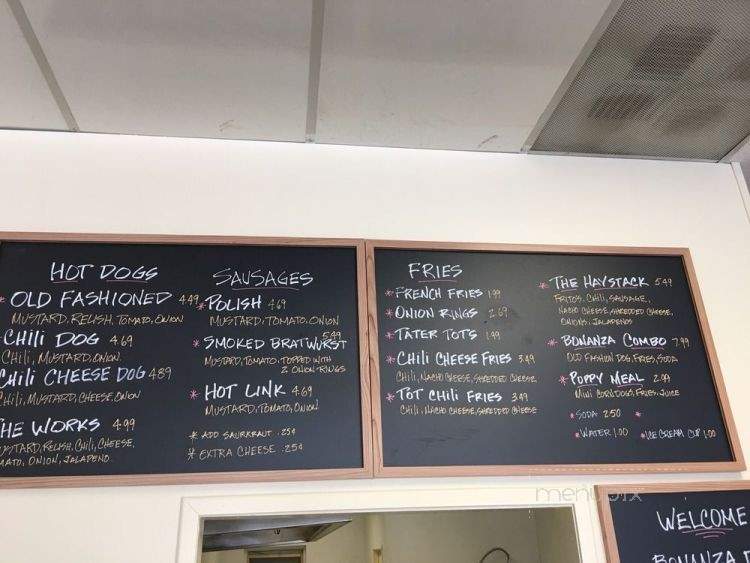 HOT DOGS
* OLD FASHIONED 449
MUSTARD, RELISH, TOMATO, ONION
CHILI DOG 469
CHILI, MUSTARD, ONION
CHILI CHEESE DOG 489
CHILI, MUSTARD, CHEESE, ONION
HE WORKS 499
USTARD, RELISH, CHILI, CHEESE,
MATO, ONION, JALAPENO
SAUSAGES
* POLISH 469
MUSTARD, TOMATO, ONION
* SMOKED BRATWURST 549
MUSTARD, TOMATO, TOPPED WITH
2 ONION RINGS
* HOT LINK 469
MUSTARD, TOMATO, ONION
* ADD SAURKRAUT .25¢
* EXTRA CHEESE .25¢
FRIES
* FRENCH FRIES 199
* ONION RINGS 269
* TATER TOTS 199
* CHILI CHEESE FRIES 349
CHILI, NACHO CHEESE, SHREDDED CHEESE
* TOT CHILI FRIES 349
CHILI, NACHO CHEESE, SHREDDED CHEESE
* THE HAYSTACK 549
FRITOS, CHILI, SAUSAGE,
NACHO CHEESE, SHREDDED CHEESE,
ONIONS, JALAPENOS
* BONANZA COMBO 799
OLD FASHION DOG, FRIES, SODA
* PUPPY MEAL 299
MINI CORNDOGS, FRIES, JUICE
* SODA 250 *
* WATER 1.00 * ICE CREAM CUP 1.00
menupix
WELCOME
BONANZA D